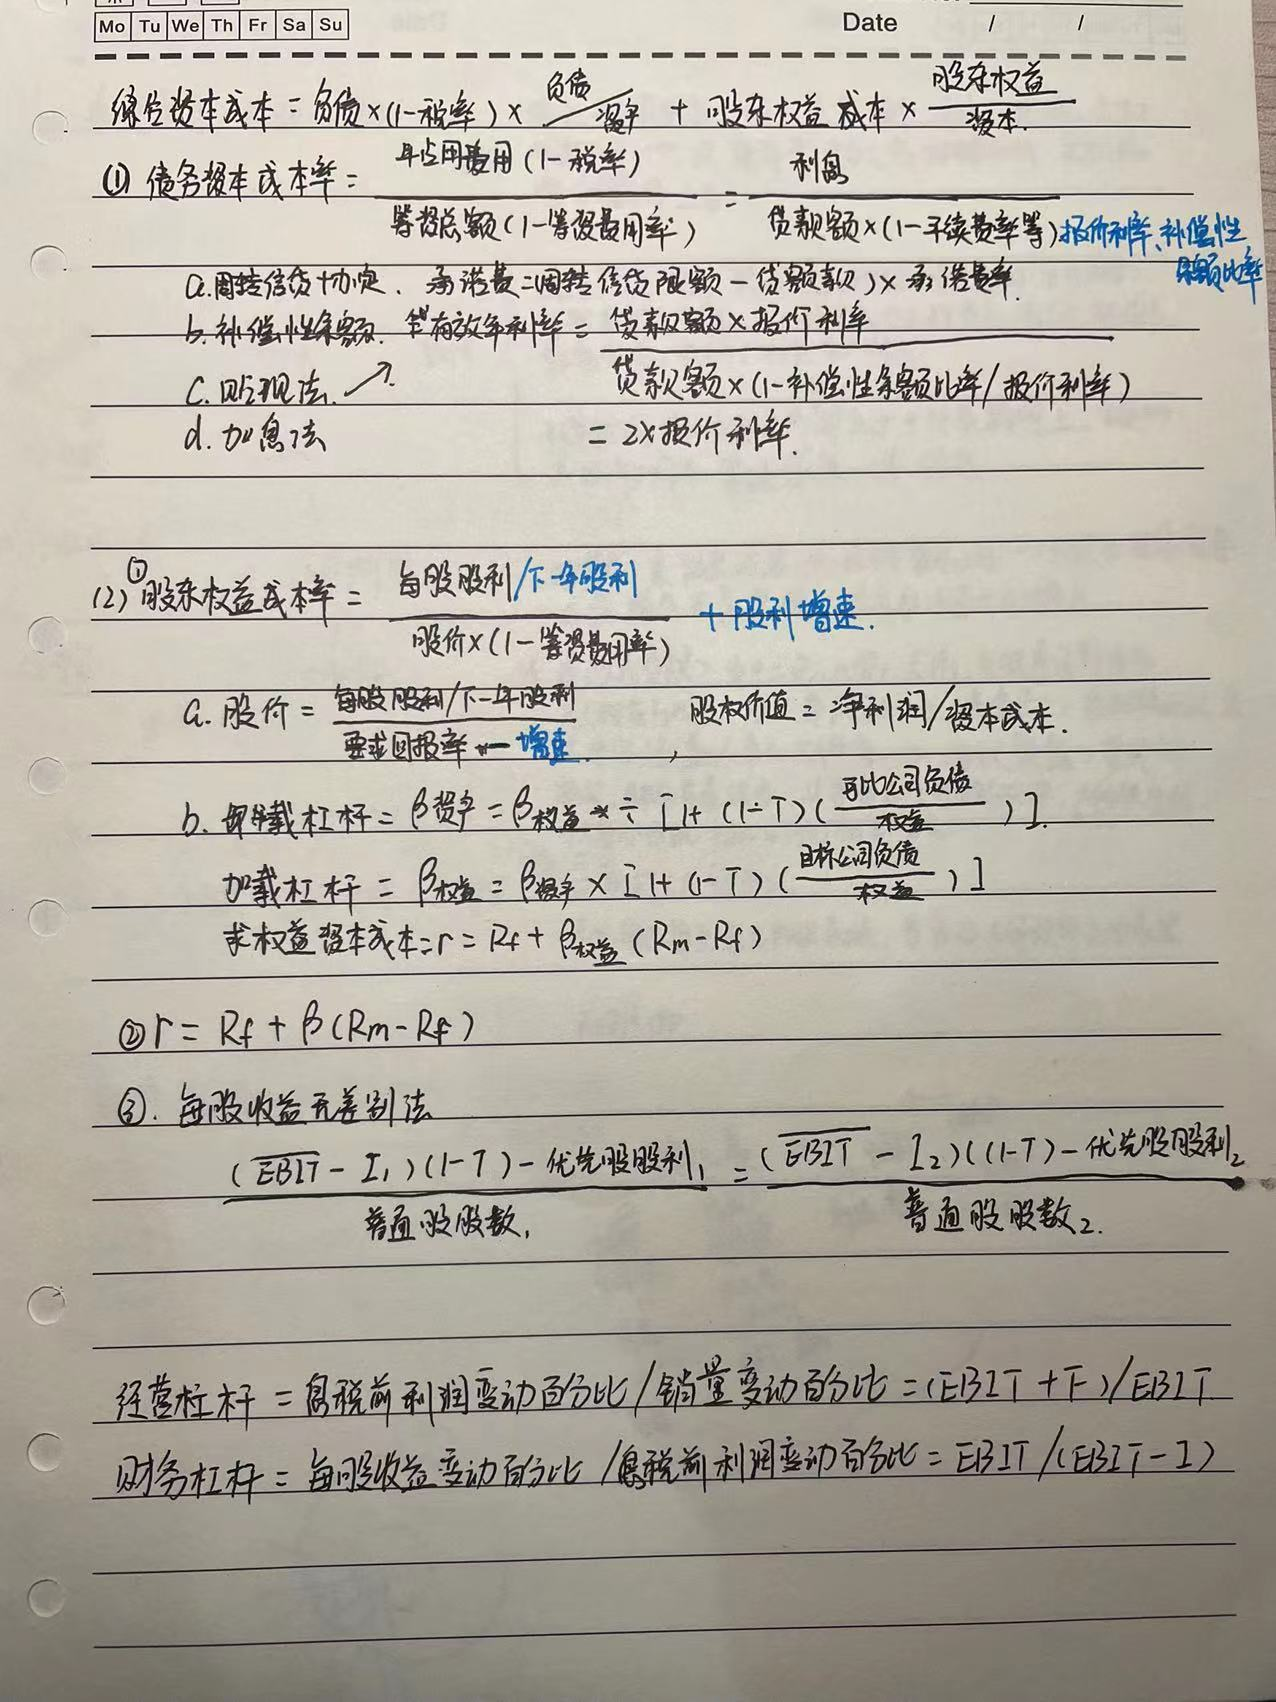 Mo Tu We Th Fr Sa Su
Date / /
综合资本成本 = 负债×(1-税率)× 负债/资产 + 股东权益成本× 股东权益/资本.
(1) 债务资本成本率 = 年占用费用(1-税率)/筹资总额(1-筹资费用率) = 利息/贷款额×(1-手续费率等) 报价利率、补偿性余额比率
a.周转信贷协定. 承诺费=(周转信贷限额-贷款额)×承诺费率.
b.补偿性余额. 有效年利率 = 贷款额×报价利率/贷款额×(1-补偿性余额比率/报价利率)
c.贴现法. ↗
d.加息法 = 2×报价利率.
(2) ①股东权益成本率 = 每股股利/下一年股利/股价×(1-筹资费用率) + 股利增速.
a.股价 = 每股股利/下一年股利/要求回报率 - 增速 , 股权价值=净利润/资本成本.
b.卸载杠杆 = β资产 = β权益 ÷ [1+(1-T)(可比公司负债/权益)].
加载杠杆 = β权益 = β资产 × [1+(1-T)(目标公司负债/权益)]
求权益资本成本=r = Rf + β权益(Rm-Rf)
② r = Rf + β(Rm-Rf)
③. 每股收益无差别法
(EBIT - I₁)(1-T) - 优先股股利₁/普通股股数₁ = (EBIT - I₂)((1-T) - 优先股股利₂/普通股股数₂.
经营杠杆 = 息税前利润变动百分比/销量变动百分比=(EBIT+F)/EBIT
财务杠杆 = 每股收益变动百分比/息税前利润变动百分比= EBIT/(EBIT-I)